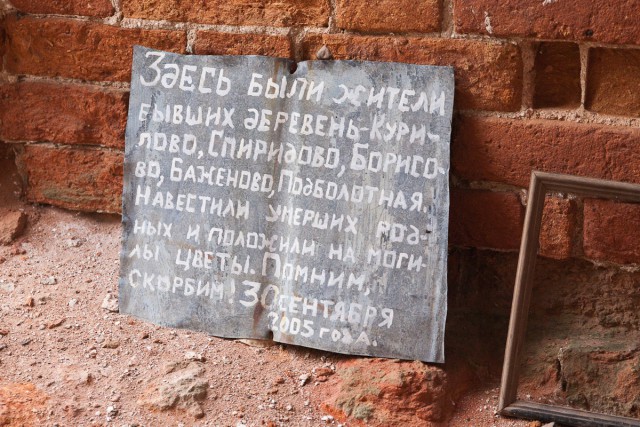 Здесь были жители
бывших деревень-Кури-
лово, Спиридово, Борисо-
во, Баженово, Подболотная.
Навестили умерших род-
ных и положили на моги-
лы цветы. Помним,
скорбим! 30 сентября
2005 года.